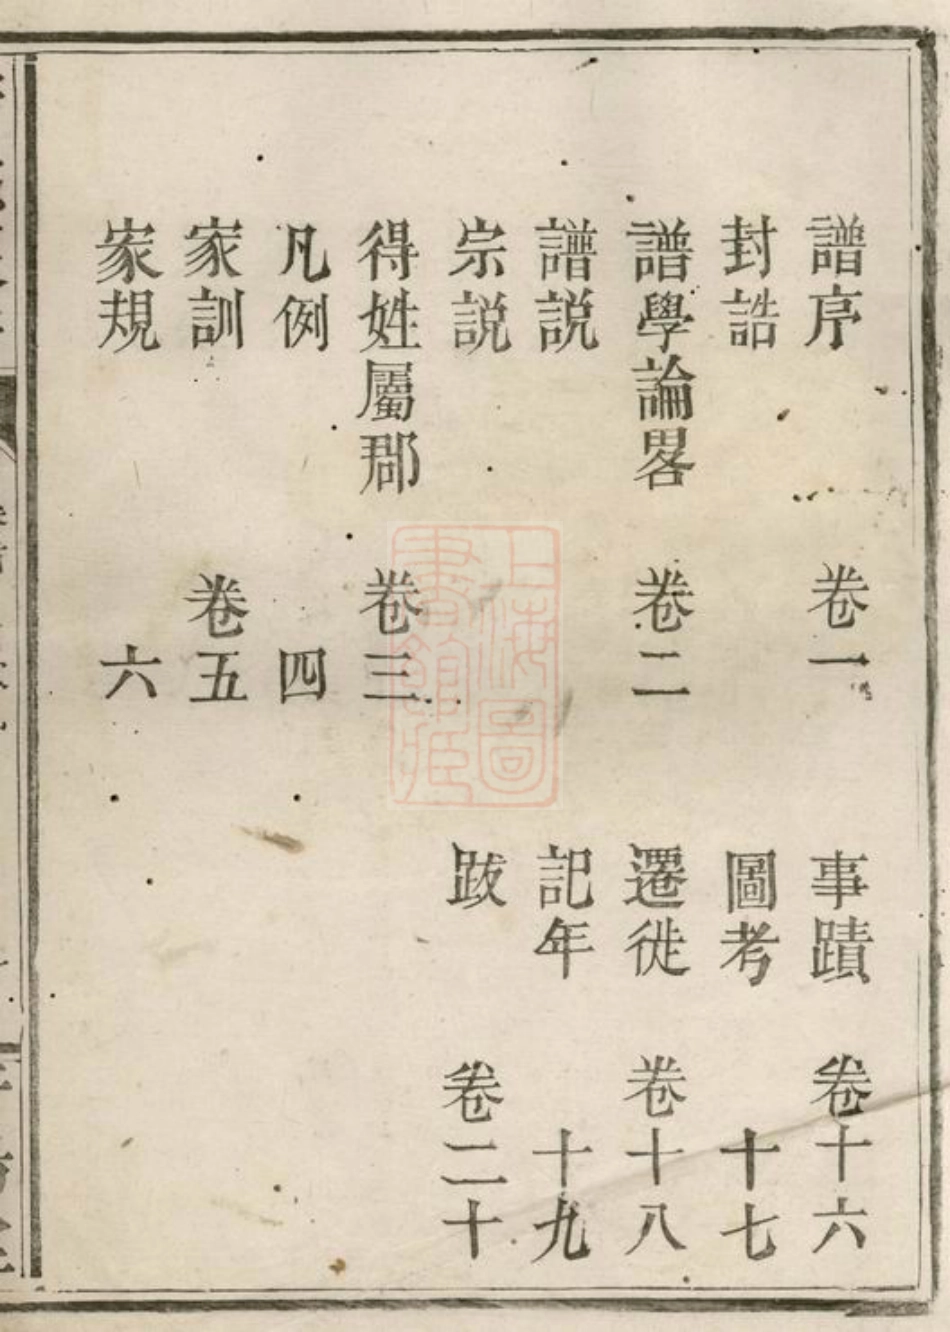 譜序 卷一
封誥
譜學論畧 卷二
譜説
宗説
得姓屬郡 卷三
凡例 四
家訓 卷五
家規 六
事蹟 卷十六
圖考 十七
遷徙 卷十八
記年 十九
跋 卷二十
上海圖書館藏